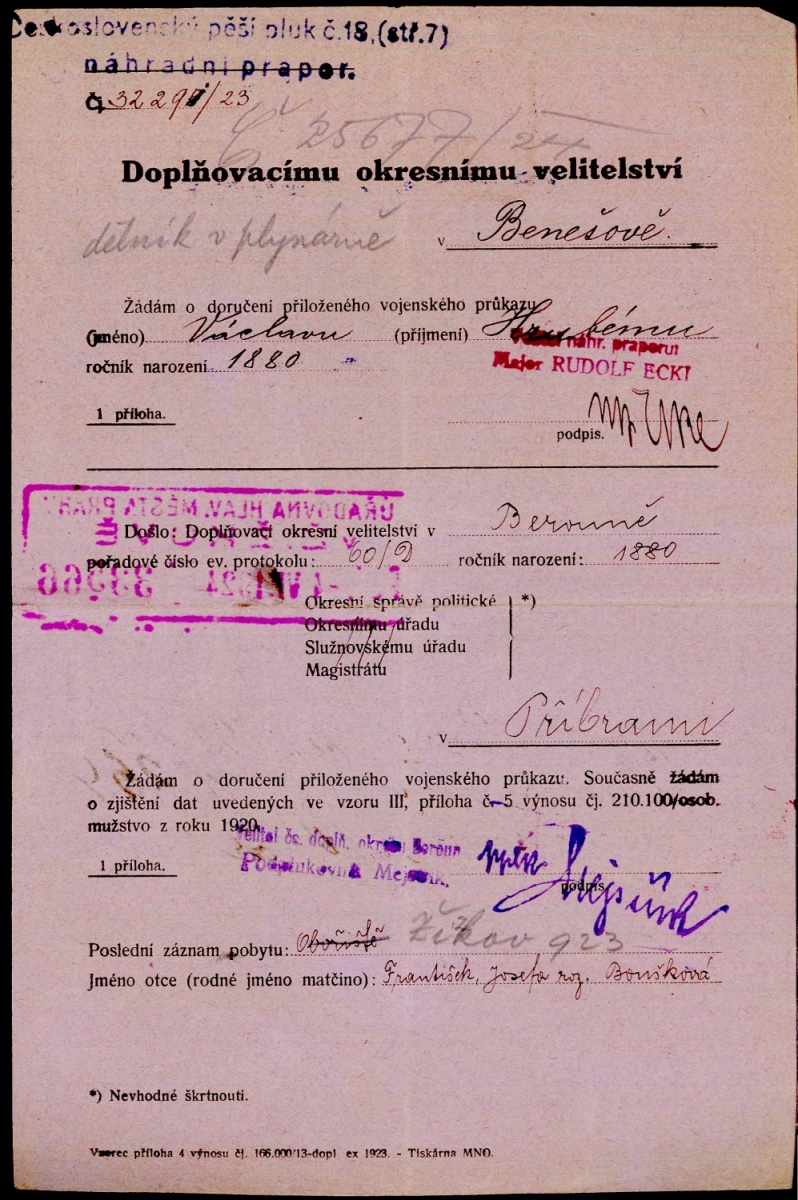 Československý pěší pluk č.18,(stř.7)
náhradní prapor.
č. 32297/23
Č 25677/24
Doplňovacímu okresnímu velitelství
dělník v plynárně v Benešově.
Žádám o doručení přiloženého vojenského průkazu
(jméno) Václavu (příjmení) Hrubému
ročník narození 1880
náhr. praporu:
Major RUDOLF ECKL
1 příloha.
podpis.
ÚŘADOVNA HLAV. MĚSTA PRAHY
Došlo: Doplňovací okresní velitelství v Berouně
pořadové číslo ev. protokolu: 60/D ročník narození: 1880
VI. 1924 33966
Okresní správě politické *)
Okresnímu úřadu
Služnovskému úřadu
Magistrátu
v Příbrami
Žádám o doručení přiloženého vojenského průkazu. Současně žádám
o zjištění dat uvedených ve vzoru III, příloha č. 5 výnosu čj. 210.100/osob.
mužstvo z roku 1920.
Velitel čs. doplň. okresu Beroun
1 příloha.
Podplukovník Mejsník.
podpis.
Poslední záznam pobytu: Obořiště Žižkov 923
Jméno otce (rodné jméno matčino): František, Josefa roz. Boušková
*) Nevhodné škrtnouti.
Vzorec příloha 4 výnosu čj. 166.000/13-dopl ex 1923. - Tiskárna MNO.